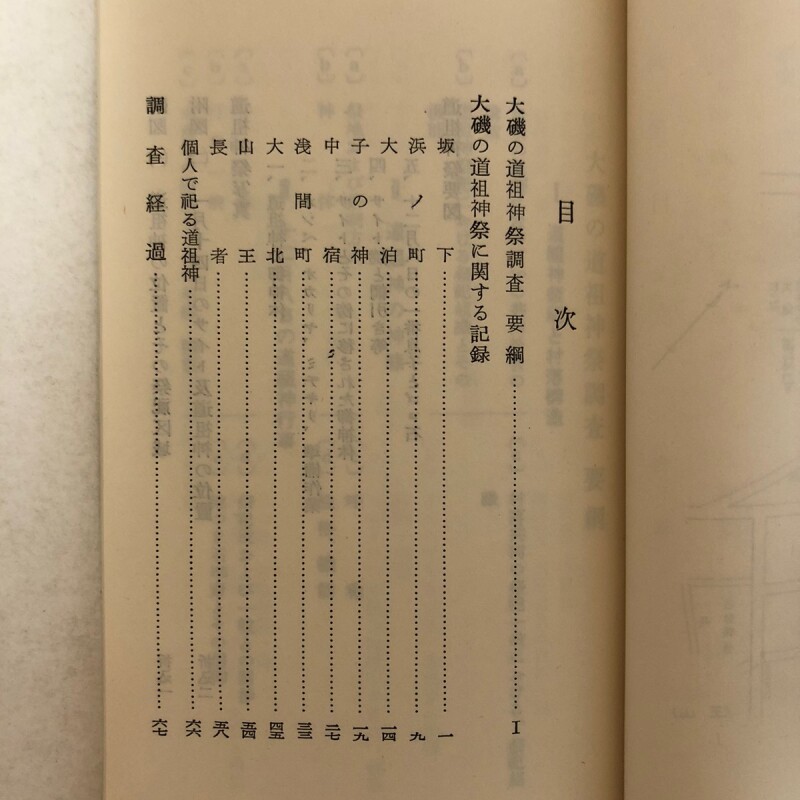 目次
大磯の道祖神祭調査要綱……I
大磯の道祖神祭に関する記録
坂下……一
浜ノ町……九
大泊……一四
子の神……一九
中宿……二七
浅間町……三三
大北……四五
山王……五四
長者……五八
個人で祀る道祖神……六六
調査経過……六七